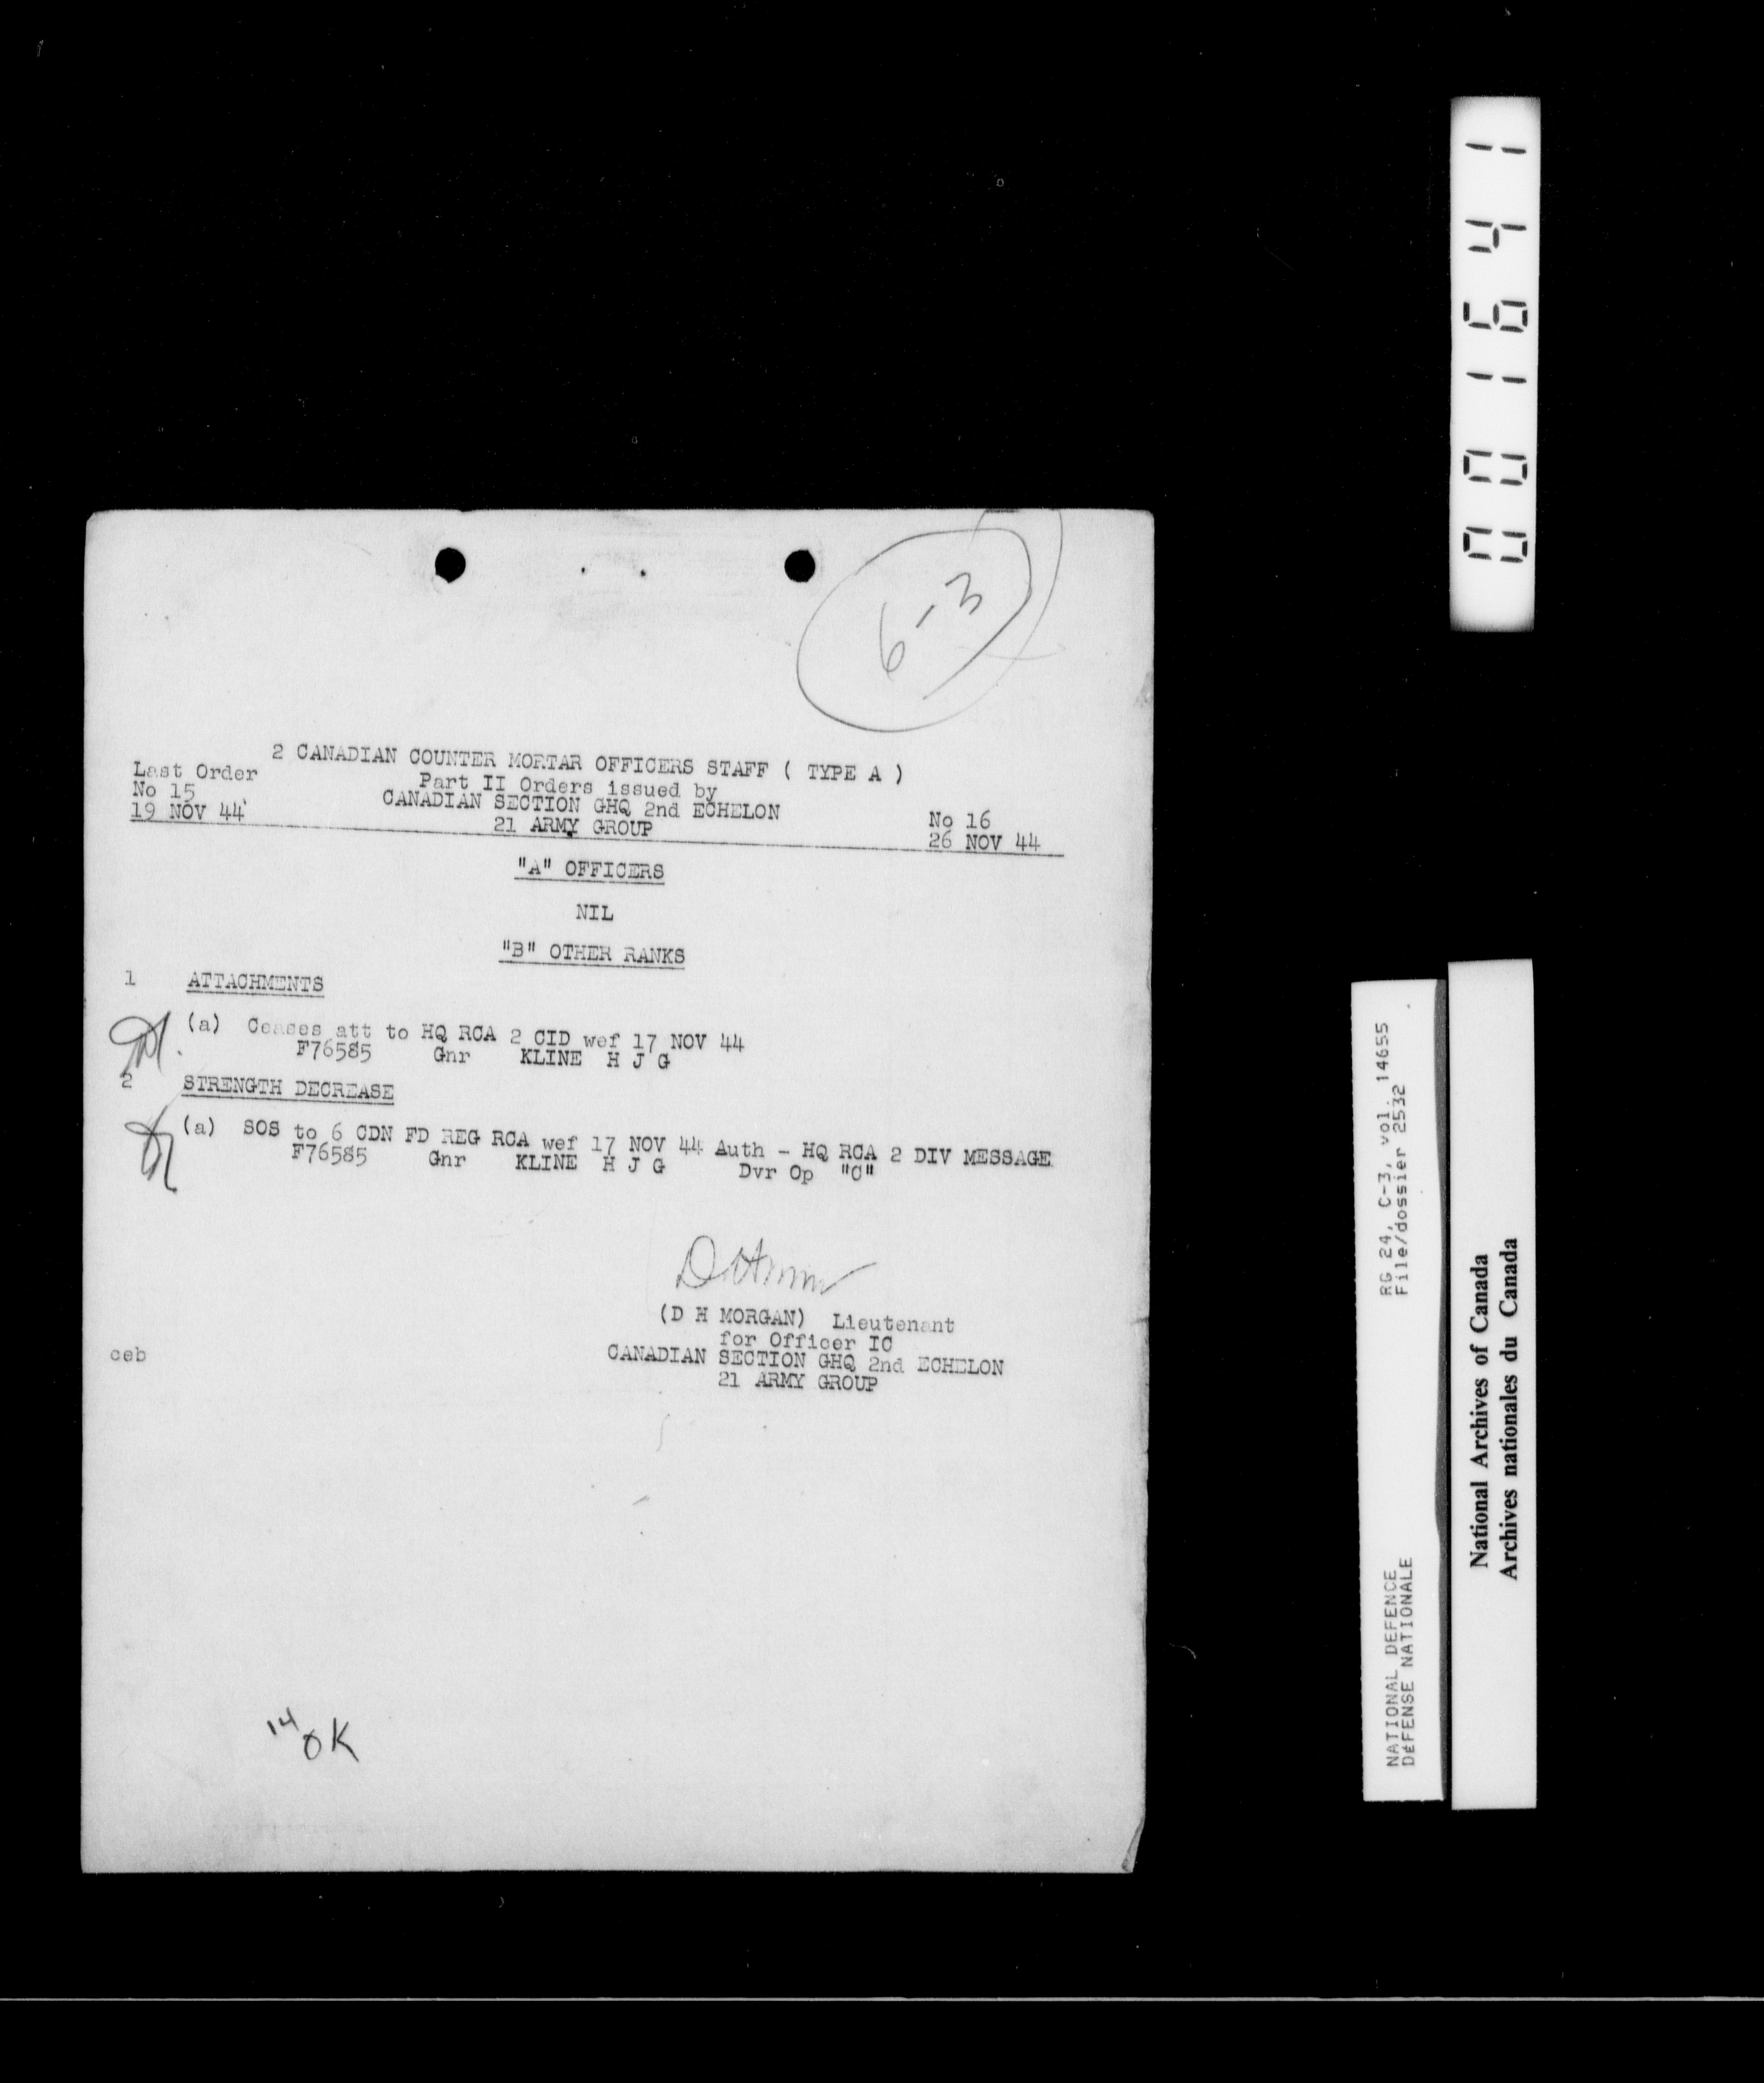 6-3
2 CANADIAN COUNTER MORTAR OFFICERS STAFF ( TYPE A )
Last Order
Part II Orders issued by
No 15
CANADIAN SECTION GHQ 2nd ECHELON
No 16
19 NOV 44
21 ARMY GROUP
26 NOV 44
"A" OFFICERS
NIL
"B" OTHER RANKS
1 ATTACHMENTS
(a) Ceases att to HQ RCA 2 CID wef 17 NOV 44
F76585 Gnr KLINE H J G
2 STRENGTH DECREASE
(a) SOS to 6 CDN FD REG RCA wef 17 NOV 44 Auth - HQ RCA 2 DIV MESSAGE
F76585 Gnr KLINE H J G Dvr Op "C"
(D H MORGAN) Lieutenant
for Officer IC
ceb
CANADIAN SECTION GHQ 2nd ECHELON
21 ARMY GROUP
14 OK
001641
RG 24, C-3, vol. 14655
File/dossier 2532
NATIONAL DEFENCE
DÉFENSE NATIONALE
National Archives of Canada
Archives nationales du Canada